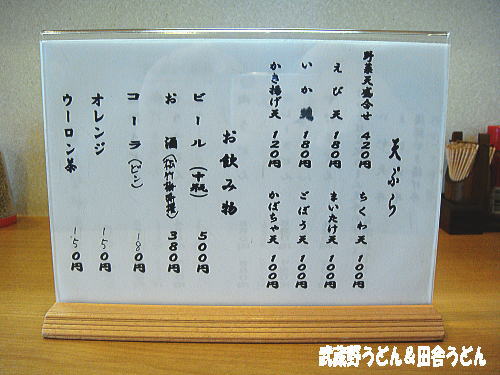 天ぷら
野菜天盛合せ 420円
えび天 180円
いか 180円
かき揚げ天 120円
ちくわ天 100円
まいたけ天 100円
ごぼう天 100円
かぼちゃ天 100円
お飲み物
ビール (中瓶) 500円
お酒 (松竹梅) 380円
コーラ (ビン) 180円
オレンジ 150円
ウーロン茶 150円
武蔵野うどん&田舎うどん